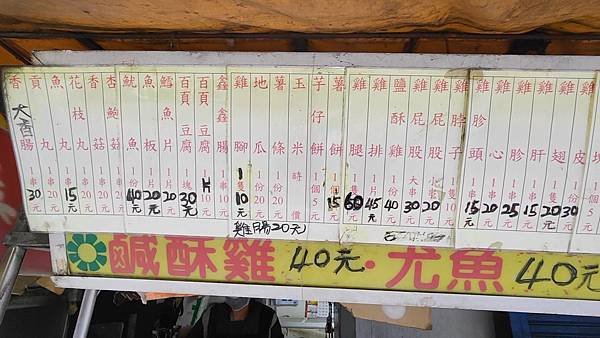 大香腸 1串30元
貢丸 1串20元
魚丸 1串20元
花枝丸 1串15元
香菇 1串20元
杏鮑菇 1串20元
魷魚 40元
魚板 1片20元
鱈魚片 1片20元
百頁豆腐 1塊30元
百頁豆腐 片10元
鑫鑫腸 1串10元
雞腳 1隻10元
地瓜 1份20元
薯條 1份20元
玉米 時價
芋仔餅 1個5元
薯餅 1個15元
雞腿 1隻60元
雞排 1片45元
鹽酥雞 40元
雞屁股 大串30元
雞屁股 1串20元
雞脖子 1隻 元
雞胗頭 1串15元
雞心 1串20元
雞胗 1串25元
雞肝 1串15元
雞翅 1隻20元
雞皮 1份30元
塊 元
雞腸20元
鹹酥雞 40元・尤魚 40元